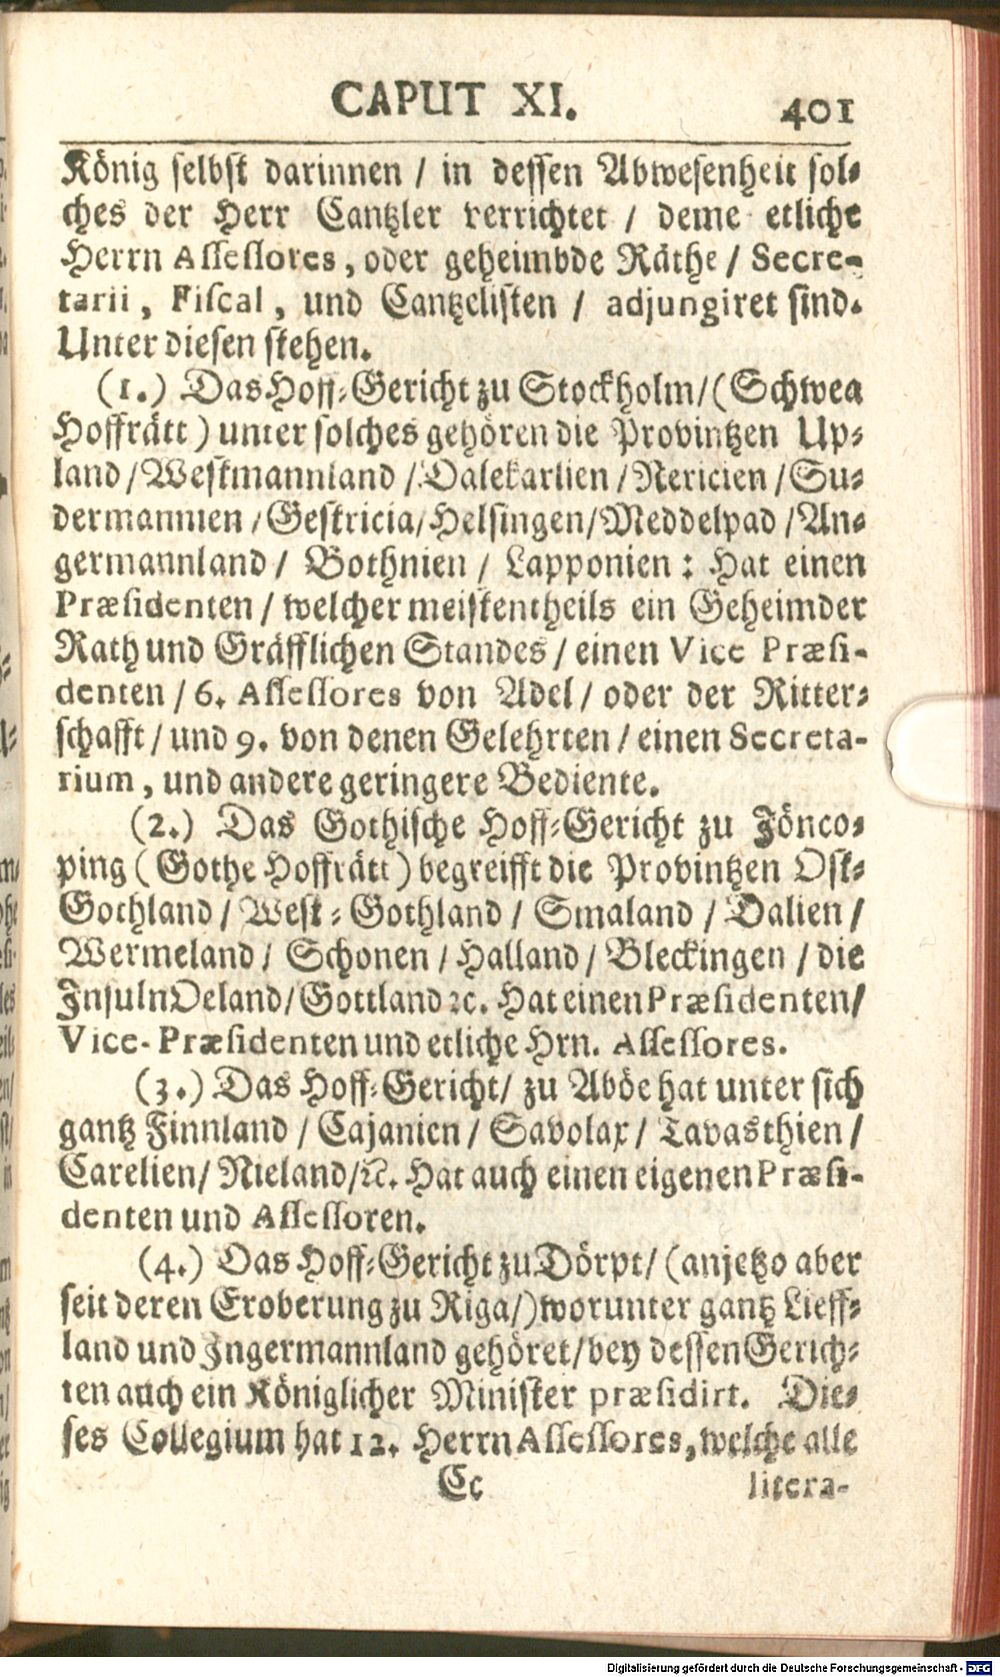 CAPUT XI. 401
König selbst darinnen / in dessen Abwesenheit sol-
ches der Herr Cantzler verrichtet / deme etliche
Herrn Assessores, oder geheimbde Räthe / Secre-
tarii, Fiscal, und Cantzelisten / adjungiret sind.
Unter diesen stehen.
(1.) Das Hoff-Gericht zu Stockholm/ (Schwea
Hoffrätt) unter solches gehören die Provintzen Up-
land / Westmannland / Dalekarlien / Nericien / Su-
dermannien / Gestricia / Helsingen / Meddelpad / An-
germannland / Bothnien / Lapponien: Hat einen
Præsidenten / welcher meistentheils ein Geheimder
Rath und Gräfflichen Standes / einen Vice Præsi-
denten / 6. Assessores von Adel / oder der Ritter-
schafft / und 9. von denen Gelehrten / einen Secreta-
rium, und andere geringere Bediente.
(2.) Das Gothische Hoff-Gericht zu Jönco-
ping (Gothe Hoffrätt) begreifft die Provintzen Ost-
Gothland / West-Gothland / Smaland / Dalien /
Wermeland / Schonen / Halland / Bleckingen / die
Insuln Oeland / Gottland ꝛc. Hat einen Præsidenten /
Vice-Præsidenten und etliche Hrn. Assessores.
(3.) Das Hoff-Gericht / zu Aböe hat unter sich
gantz Finnland / Cajanien / Savolax / Tavasthien /
Carelien / Nieland / ꝛc. Hat auch einen eigenen Præsi-
denten und Assessoren.
(4.) Das Hoff-Gericht zu Dörpt / (anjetzo aber
seit deren Eroberung zu Riga /) worunter gantz Lieff-
land und Ingermannland gehöret / bey dessen Gerich-
ten auch ein Königlicher Minister præsidirt. Die-
ses Collegium hat 12. Herrn Assessores, welche alle
Cc litera-
Digitalisierung gefördert durch die Deutsche Forschungsgemeinschaft - DFG